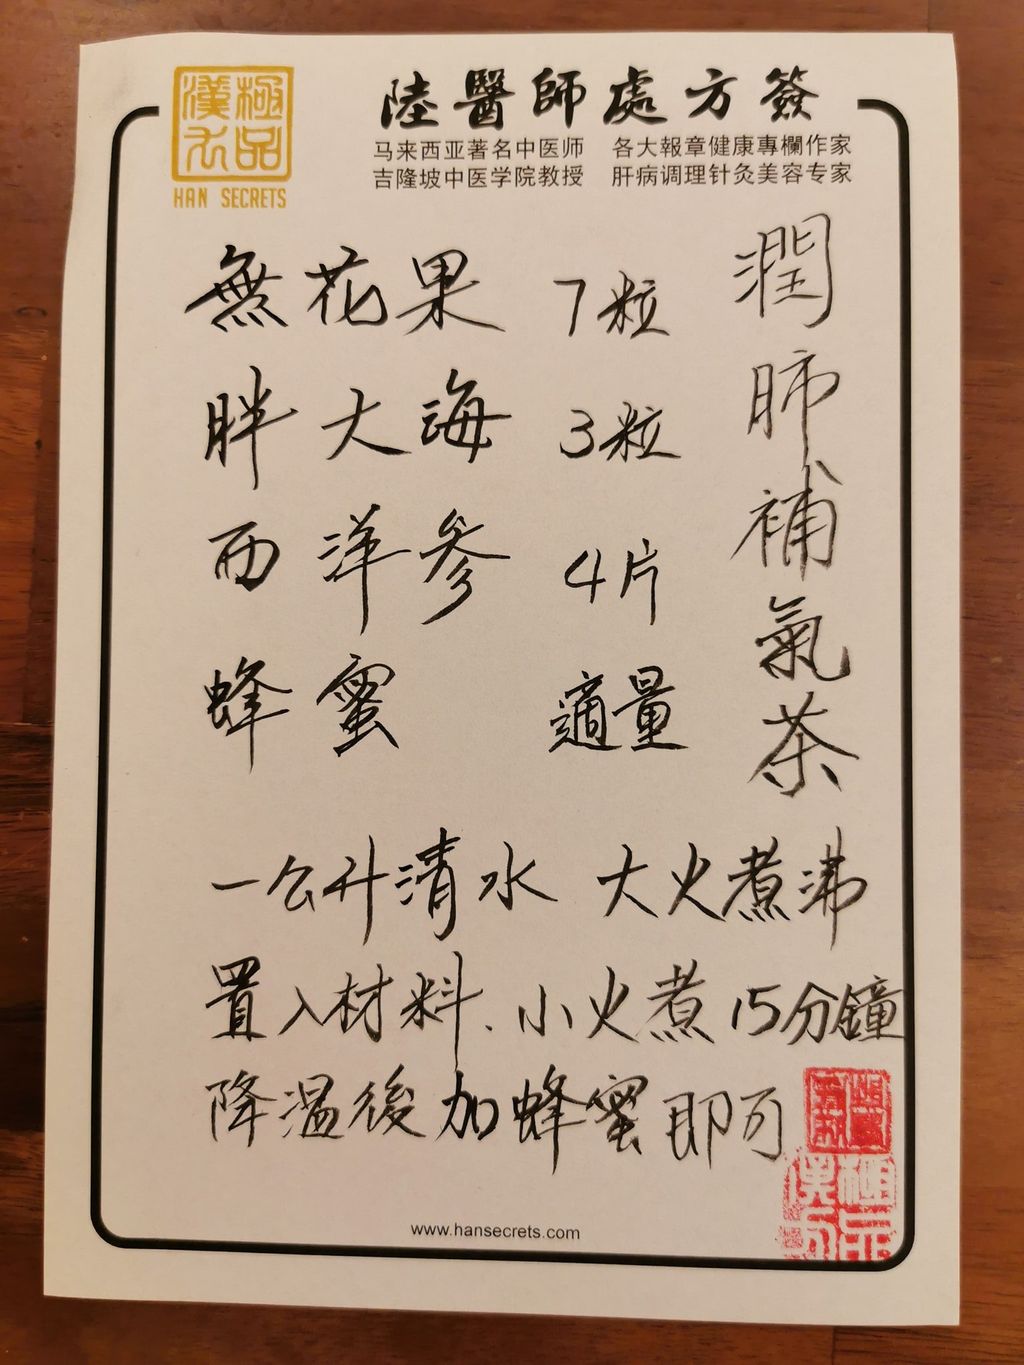 極品漢方
HAN SECRETS
陸醫師處方簽
马来西亚著名中医师 各大報章健康專欄作家
吉隆坡中医学院教授 肝病调理针灸美容专家
潤肺補氣茶
無花果 7粒
胖大海 3粒
西洋參 4片
蜂蜜 適量
一公升清水 大火煮沸
置入材料、小火煮15分鐘
降溫後加蜂蜜即可
www.hansecrets.com